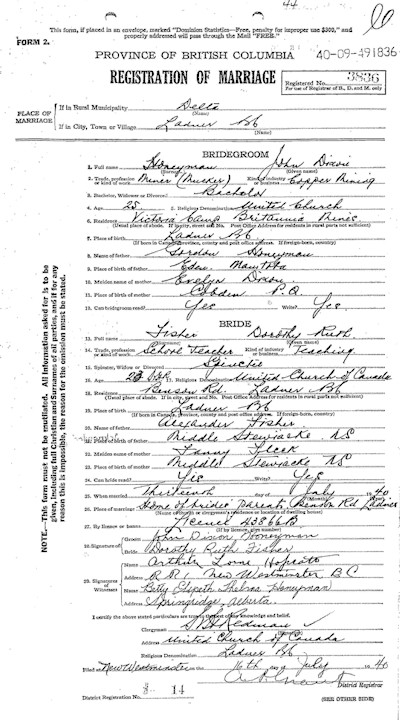 44
This form, if placed in an envelope, marked "Dominion Statistics—Free, penalty for improper use $300," and
properly addressed will pass through the Mail "FREE."
FORM 2.
PROVINCE OF BRITISH COLUMBIA 40-09-491836
REGISTRATION OF MARRIAGE
Registered No. 3836
For use of Registrar of B., D. and M. only
PLACE OF MARRIAGE
If in Rural Municipality Delta
(Name)
If in City, Town or Village Ladner BC
(Name)
BRIDEGROOM
1. Full name Honeyman John Dixon
(Surname) (Given name)
2. Trade, profession or kind of work Miner (Mucker) Kind of industry or business Copper Mining
3. Bachelor, Widower or Divorced Bachelor
4. Age 25. 5. Religious Denomination United Church
6. Residence Victoria Camp Britannia Mines
(Usual place of abode. If in city, street and No. Post Office Address for residents in rural parts not sufficient)
7. Place of birth Ladner BC
(If born in Canada, province, county and post office address. If foreign-born, country)
8. Name of father Gordon Honeyman
9. Place of birth of father Eden, Manitoba
10. Maiden name of mother Evelyn Dixon
11. Place of birth of mother P.Q.
12. Can bridegroom read? Yes Write? Yes.
BRIDE
13. Full name Fisher Dorothy Ruth
(Surname) (Given name)
14. Trade, profession or kind of work School Teacher Kind of industry or business Teaching
15. Spinster, Widow or Divorced Spinster
16. Age 17. Religious Denomination United Church of Canada
18. Residence Benson Rd. Ladner BC
(Usual place of abode. If in city, street and No. Post Office address for residents in rural parts not sufficient)
19. Place of birth Ladner BC
(If born in Canada, Province, county and post office address. If foreign-born, country)
20. Name of father Alexander Fisher
21. Place of birth of father Middle Stewiacke NS
22. Maiden name of mother Fanny
23. Place of birth of mother Middle Stewiacke NS
24. Can bride read? Yes Write? Yes
25. When married Thirteenth day of July 1940
26. Place of marriage Home of brides Parents Benson Rd Ladner
27. By licence or banns Licence 43866B
(If by licence, give number)
28. Signature of
Groom John Dixon Honeyman
Bride Dorothy Ruth Fisher
29. Signatures of Witnesses
Name Arthur Lorne
Address R.R.1. New Westminster B C
Name Betty Elspeth Thelma Honeyman
Address Springridge, Alberta.
I certify the above stated particulars are true to the best of my knowledge and belief.
Clergyman Redman
Address United Church of Canada
Religious Denomination
Ladner BC
Filed at New Westminster the 16th day of July 1940
District Registrar
District Registration No. 14
(SEE OTHER SIDE)
NOTE.—This form must not be mutilated. All information asked for is to be
given, including full Christian and Surnames of all parties, and if for any
reason this is impossible, the reason for the omission must be stated.